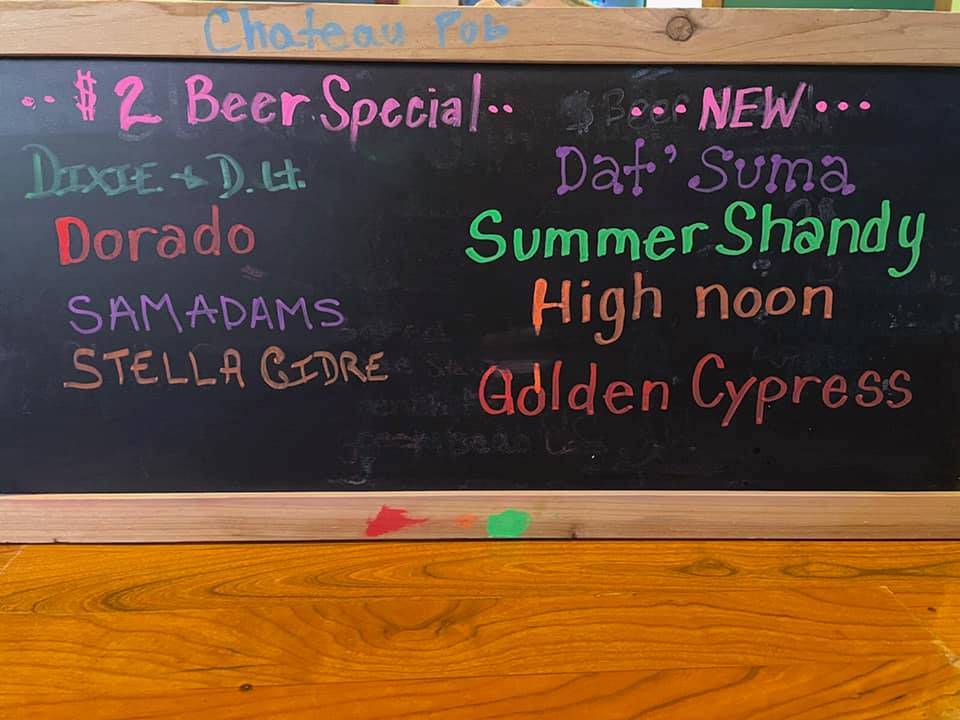 Chateau Pob
·· $2 Beer Special ··
DIXIE + D. Lt.
Dorado
SAM ADAMS
STELLA CIDRE
··· NEW ···
Dat' Suma
Summer Shandy
High noon
Golden Cypress